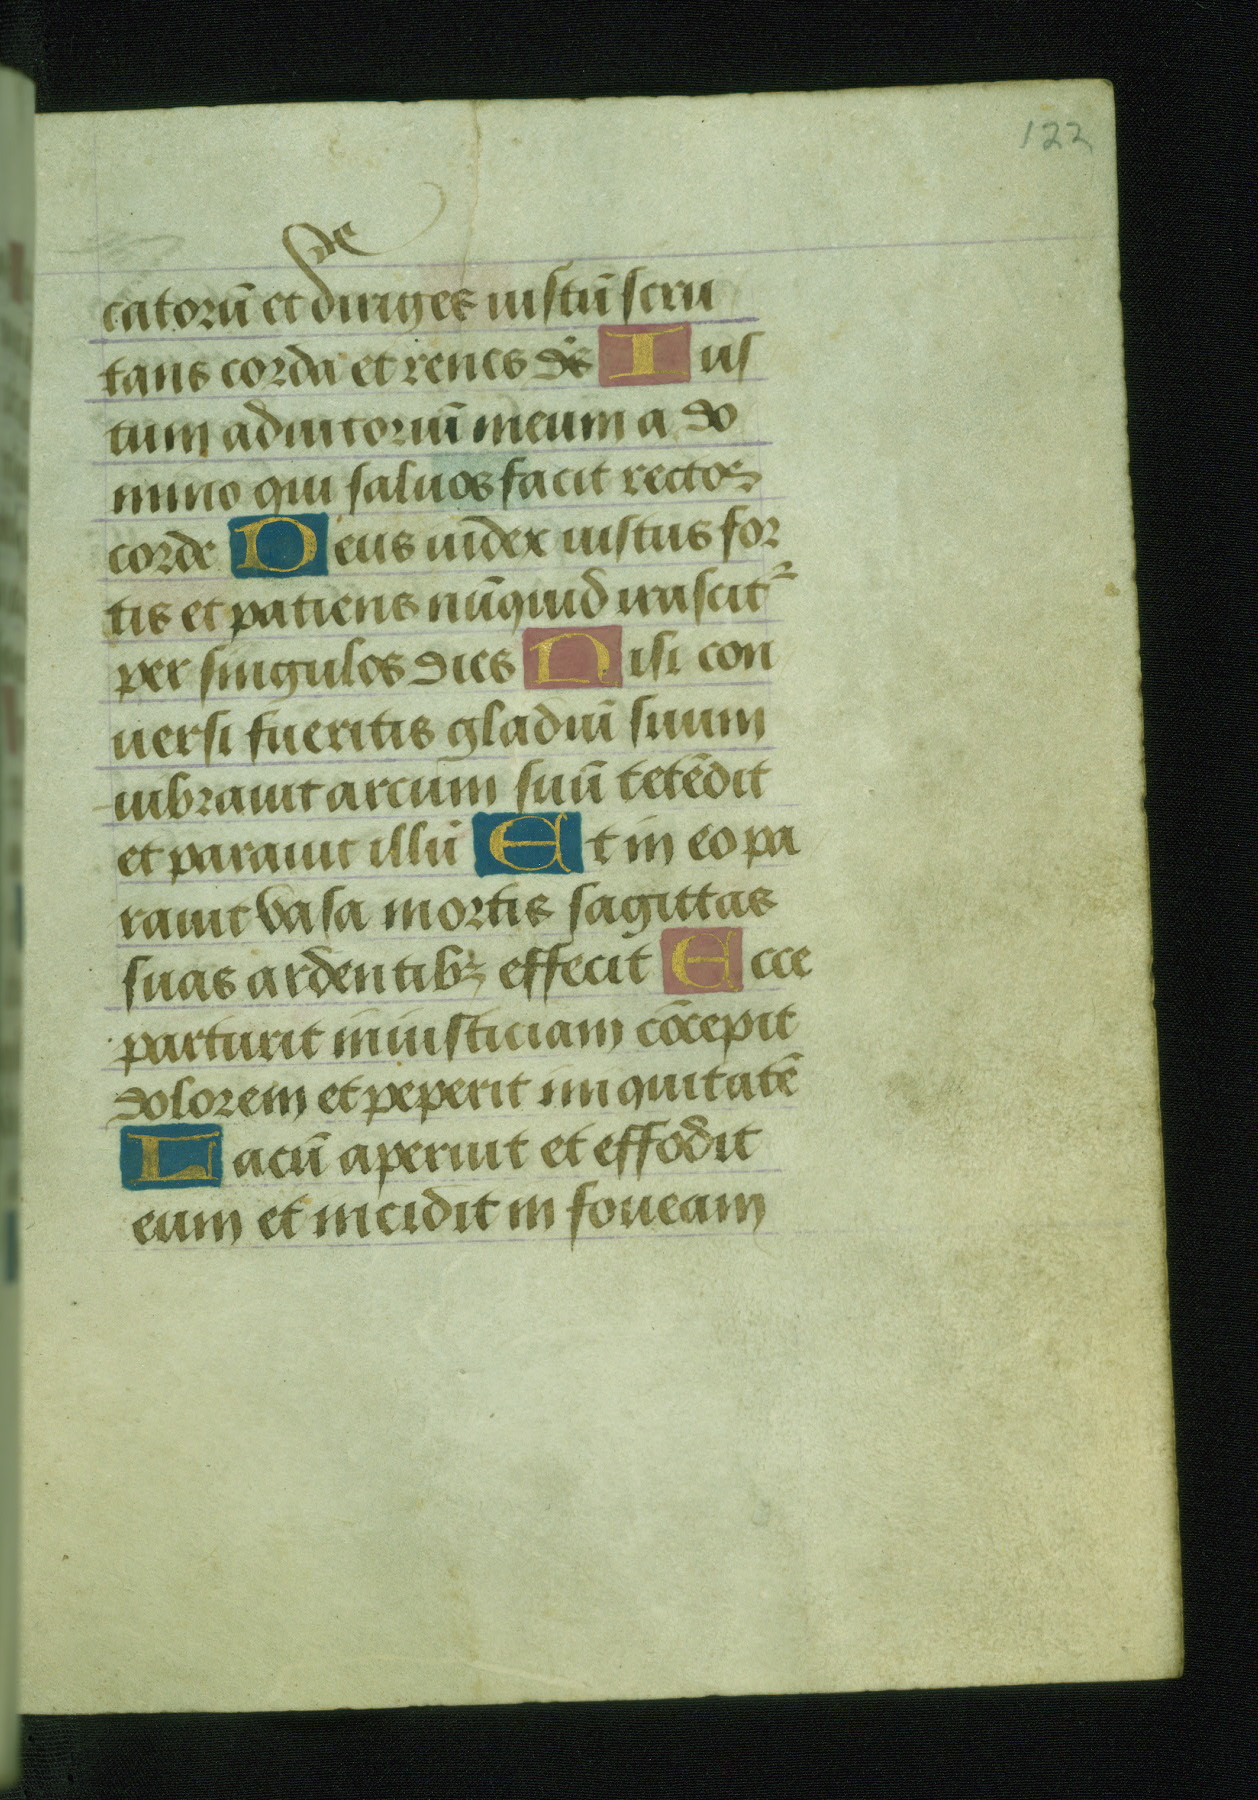 122
catorū et diriges iustū scru
tans corda et renes ds̄ Ius
tum adiutoriū meum a do
mino qui saluos facit rectos
corde Deus iudex iustus for
tis et patiens nūquid irascit᷑
per singulos dies Nisi con
uersi fueritis gladiū suum
uibrauit arcum suū tetēdit
et parauit illū Et in eo pa
rauit vasa mortis sagittas
suas ardentibꝫ effecit Ecce
parturit iniusticiam cōcepit
dolorem et peperit iniquitatē
Lacū aperuit et effodit
eum et incidit in foueam